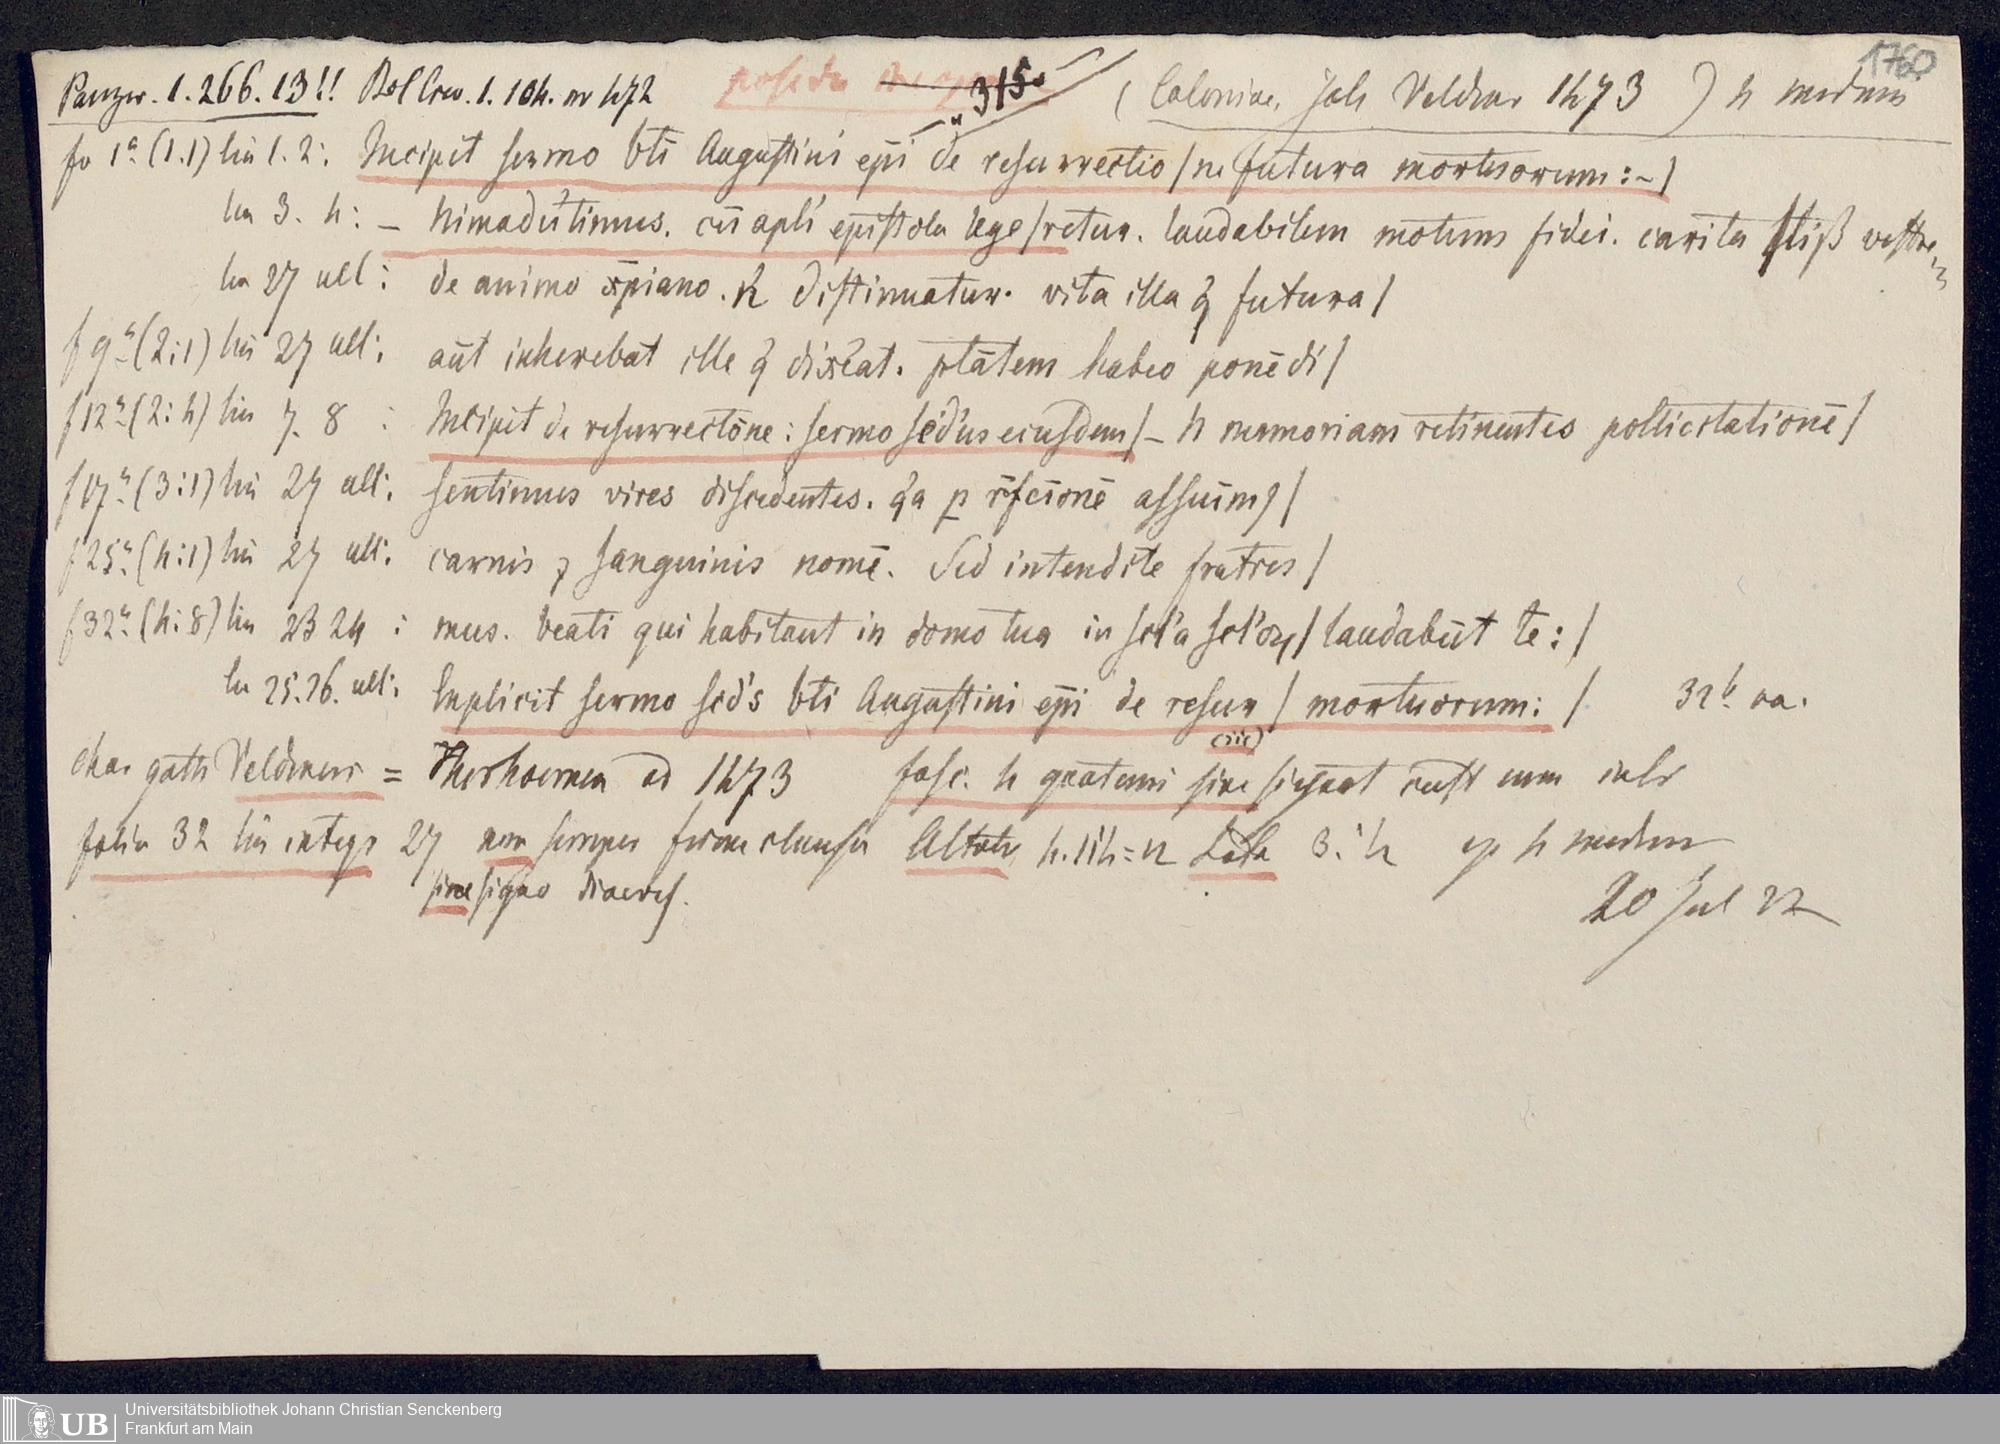 1760
Panzer. 1. 266. 13!! Bellew. 1. 104. nr 472 3150 (Coloniae, Joh Veldener 1473) 4 medium
fo 1a (1.1) lin 1. 2: Incipit sermo bti Augustini epi de resurrectio/ne futura mortuorum:-/
lin 3. 4: – Nimaduertimus. cū apli epistola lege/retur. laudabilem motum fidei. carita/tiß vestre
lin 27 ult: de animo xpiano. N destinuatur. vita illa q futura/
f 9a (2:1) lin 27 ult: aūt inherebat ille q dixeat. ptātem habeo ponēdi/
f 12a (2:4) lin 7. 8 : Incipit de resurrectōne: sermo sēdus eiusdem/ – N memoriam retinentes pollicitationē/
f 17a (3:1) lin 27 ult: sentimus vires discedentes. q'a p rēfciōnē assuim9/
f 25a (4:1) lin 27 ult: carnis ⁊ sanguinis nomē. Sed intendite fratres/
f 32a (4:8) lin 23 24 : mus. beati qui habitant in domo tua in scl'a scl'oꝝ/laudabūt te:/
lin 25. 26. ult: Explicit sermo scd's bti Augustini epi de resur/mortuorum: / 32b va.
char goth Veldeneri = Therhoernen ad 1473 fasc. 4 quaterni sine (sic) signat cust num
folia 32 lin integr 27 non semper firme clausa Altit 4. lat 3. 4 ex 4 medium
sine signo diaeres.
20 Jul 22
UB Universitätsbibliothek Johann Christian Senckenberg
Frankfurt am Main